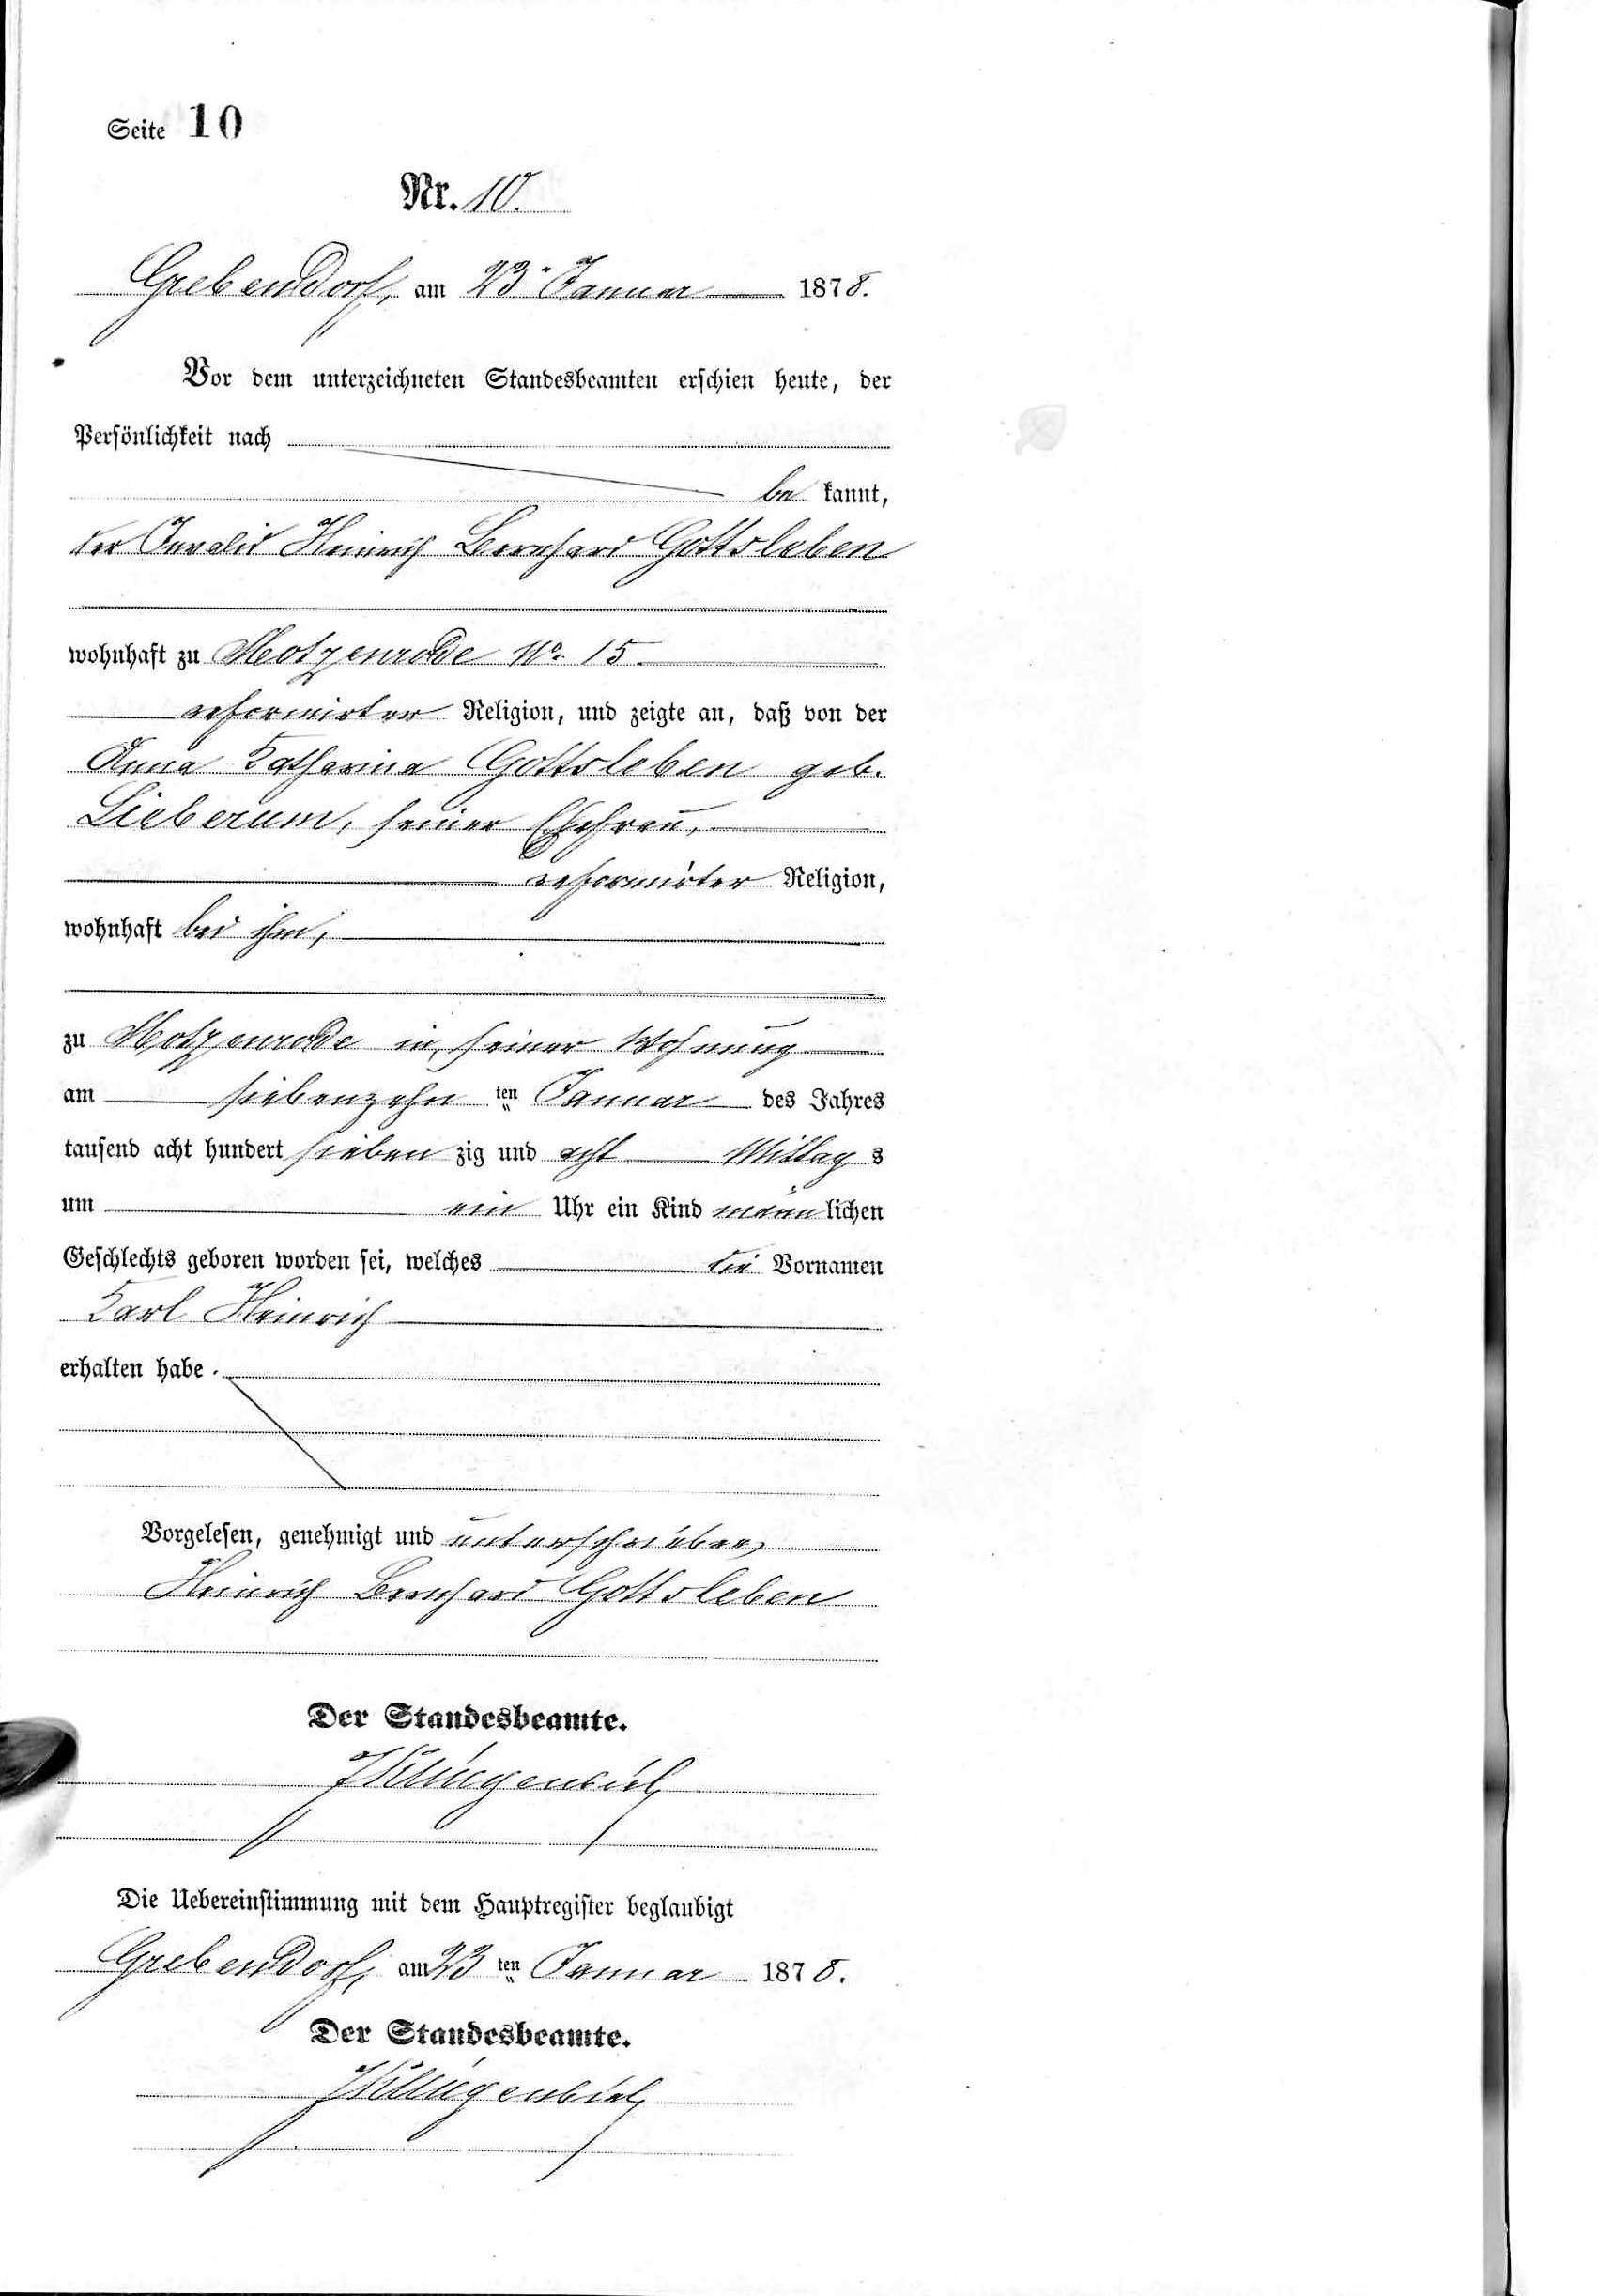 Seite 10
Nr. 10.
Grebendorf, am 23. Januar 1878.
Vor dem unterzeichneten Standesbeamten erschien heute, der
Persönlichkeit nach
be kannt,
der Invalid Heinrich Bernhard Gottsleben
wohnhaft zu Motzenrode No. 15.
reformirter Religion, und zeigte an, daß von der
Anna Katharina Gottsleben geb.
Lieberum, seiner Ehefrau,
reformirter Religion,
wohnhaft bei ihm,
zu Motzenrode in seiner Wohnung
am siebenzehn ten Januar des Jahres
tausend acht hundert sieben zig und acht Mittag s
um ein Uhr ein Kind männ lichen
Geschlechts geboren worden sei, welches die Vornamen
Karl Heinrich
erhalten habe.
Vorgelesen, genehmigt und unterschrieben
Heinrich Bernhard Gottsleben
Der Standesbeamte.
Die Uebereinstimmung mit dem Hauptregister beglaubigt
Grebendorf, am 23 ten Januar 1878.
Der Standesbeamte.